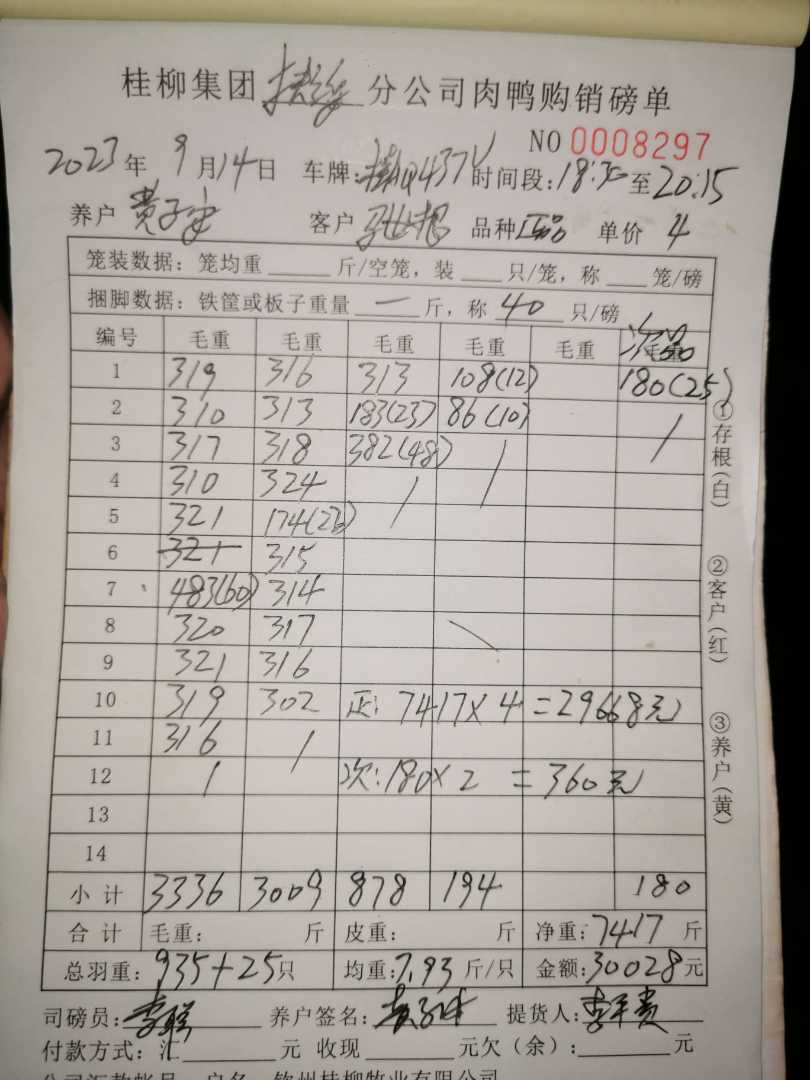 桂柳集团 分公司肉鸭购销磅单
NO 0008297
2023年 9月14日 车牌: 时间段:18:30至20:15
养户 客户 品种正品 单价 4
笼装数据: 笼均重 斤/空笼, 装 只/笼, 称 笼/磅
捆脚数据: 铁筐或板子重量 一 斤, 称 40 只/磅
编号 毛重 毛重 毛重 毛重 毛重 次品
1 319 316 313 108(12) 180(25)
2 310 313 183(23) 86(10)
3 317 318 382(48)
4 310 324
5 321 174(22)
6 321 315
7 483(60) 314
8 320 317
9 321 316
10 319 302 正: 7417×4=29668元
11 316
12 次:180×2=360元
13
14
小计 3336 3009 878 194 180
合计 毛重: 斤 皮重: 斤 净重:7417 斤
总羽重:935+25只 均重:7.93 斤/只 金额:30028元
司磅员: 养户签名: 提货人:
付款方式:汇 元 收现 元欠(余): 元
公司汇款帐号 户名 钦州桂柳牧业有限公司
①存根(白)
②客户(红)
③养户(黄)